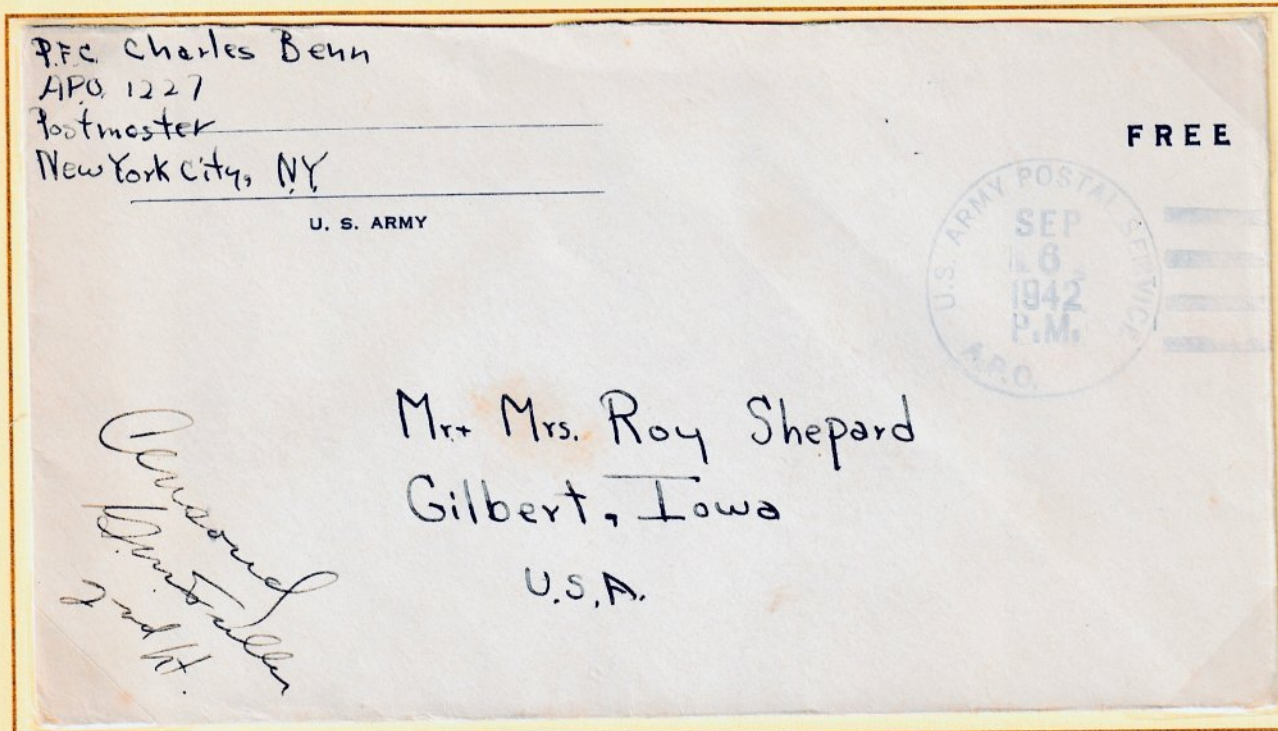 P.F.C. Charles Benn
APO. 1227
Postmaster
New York City, NY
U. S. ARMY
FREE
U.S. ARMY POSTAL SERVICE
SEP
6
1942
P.M.
A.P.O.
Mr + Mrs. Roy Shepard
Gilbert, Iowa
U.S.A.
Censored
2nd Lt.